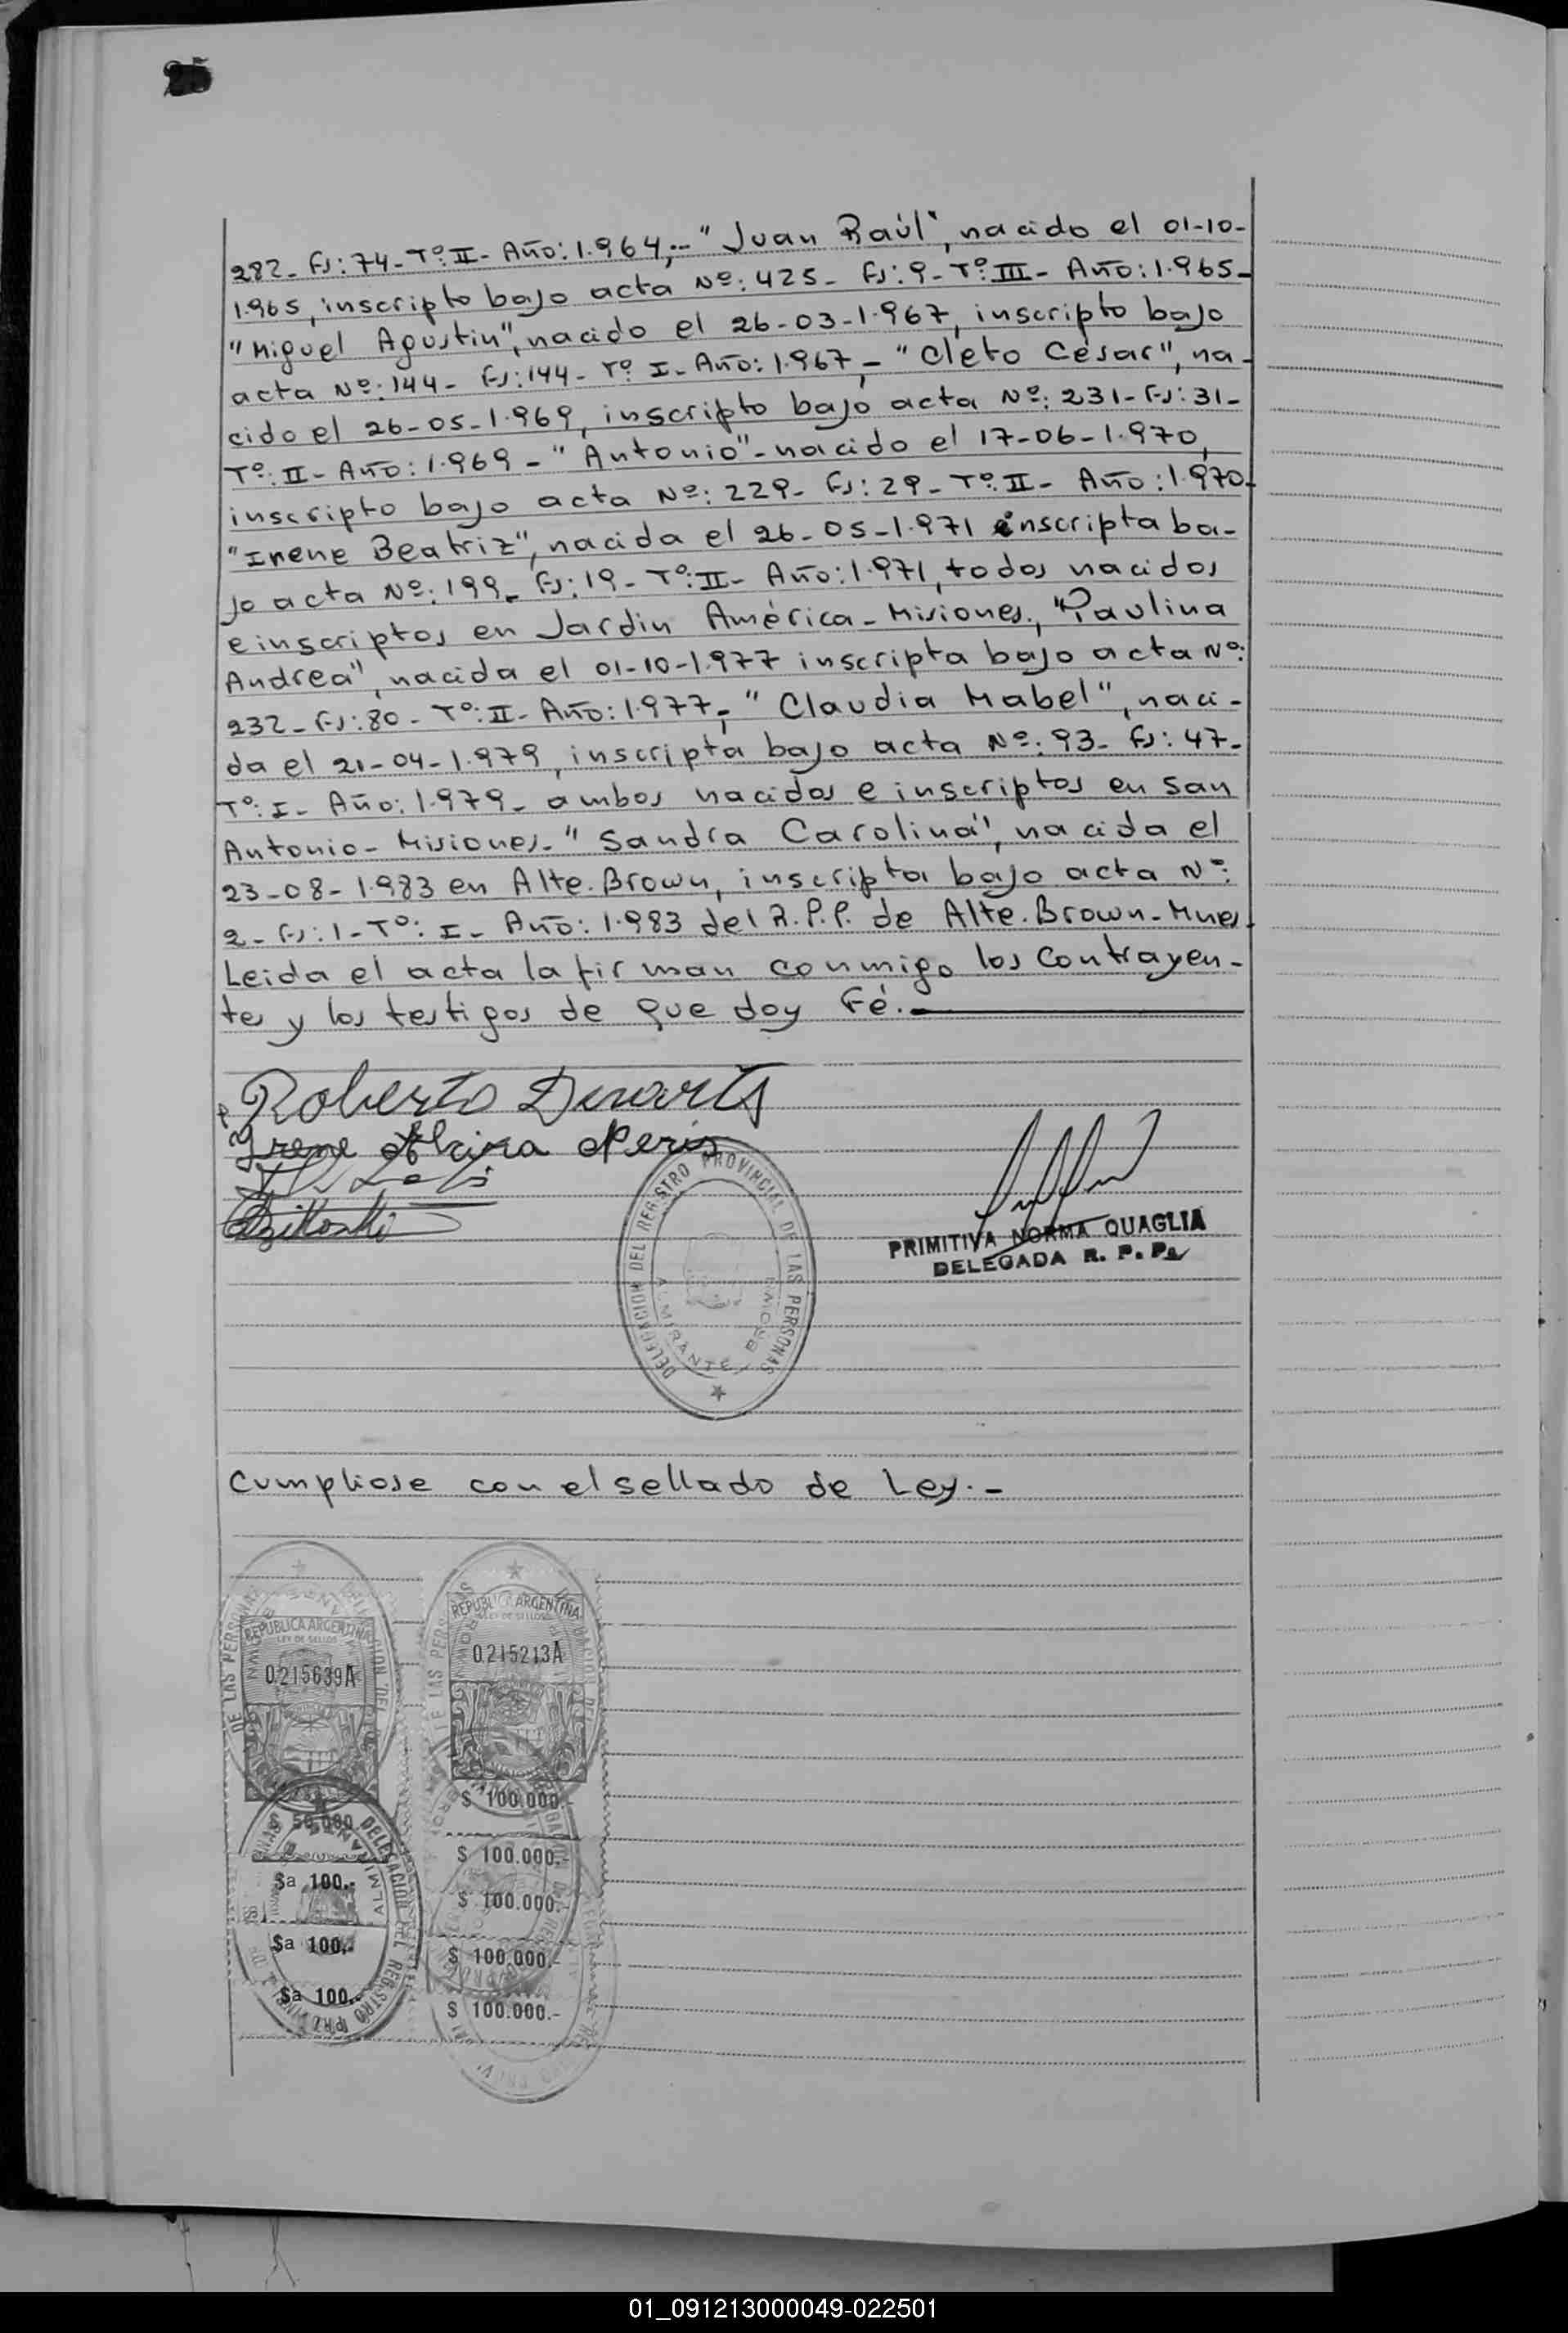 25
282- Fs: 74- Tº: II- Año: 1.964,-- "Juan Raúl", nacido el 01-10-
1.965, inscripto bajo acta Nº: 425- Fs: 9- Tº: III- Año: 1.965-
"Miguel Agustin", nacido el 26-03-1.967, inscripto bajo
acta Nº: 144- Fs: 144- Tº I- Año: 1.967,- "Cleto César", na-
cido el 26-05-1.969, inscripto bajo acta Nº: 231- Fs: 31-
Tº: II- Año: 1.969- "Antonio"- nacido el 17-06-1.970,
inscripto bajo acta Nº: 229- Fs: 29- Tº: II- Año: 1.970-
"Irene Beatriz", nacida el 26-05-1.971 inscripta ba-
jo acta Nº: 199- Fs: 19- Tº: II- Año: 1.971, todos nacidos
e inscriptos en Jardin América- Misiones., "Paulina
Andrea", nacida el 01-10-1.977 inscripta bajo acta Nº:
232- Fs: 80- Tº: II- Año: 1.977,- "Claudia Mabel", naci-
da el 21-04-1.979, inscripta bajo acta Nº: 93- Fs: 47-
Tº: I- Año: 1.979- ambos nacidos e inscriptos en San
Antonio- Misiones- "Sandra Carolina", nacida el
23-08-1.983 en Alte. Brown, inscripta bajo acta Nº:
2- Fs: 1- Tº: I- Año: 1.983 del R.P.P. de Alte. Brown- Mnes.
Leida el acta la firman conmigo los Contrayen-
tes y los testigos de que doy Fé.-
Roberto
Irene
DELEGACION DEL REGISTRO PROVINCIAL DE LAS PERSONAS
ALMIRANTE BROWN
PRIMITIVA NORMA QUAGLIA
DELEGADA R. P. P.
Cumpliose con el sellado de Ley.-
REPUBLICA ARGENTINA
LEY DE SELLOS
0.215639A
$ 50.000
$a 100.-
$a 100.-
$a 100.-
REPUBLICA ARGENTINA
LEY DE SELLOS
0.215213A
$ 100.000.-
$ 100.000.-
$ 100.000.-
$ 100.000.-
$ 100.000.-
01_091213000049-022501